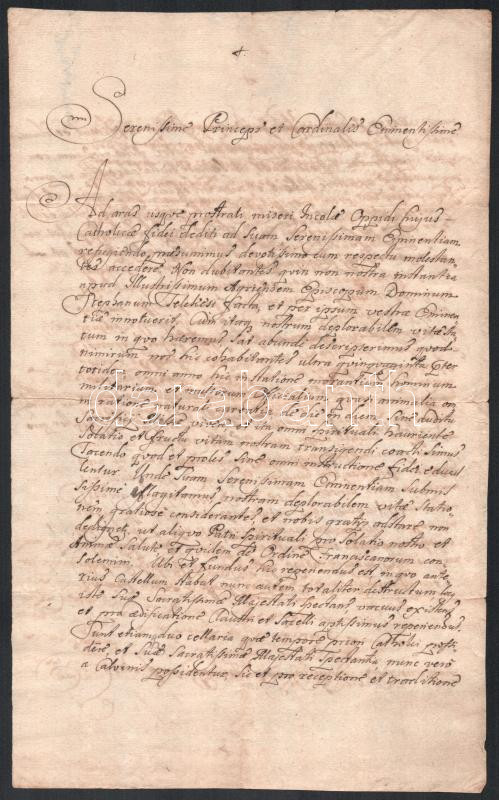 Serenissime Princeps et Cardinalis Eminentissime
Ad aras usque prostrati miseri Incolæ Oppidi hujus
Catholicæ fidei dediti ad Suam Serenissimam Eminentiam
refugiendo præsumimus devotissimo cum respectu molestan-
tes accedere. Non dubitantes quin non nostra instantia
apud Illustrissimum Agriensem Episcopum Dominum
Stephanum Telekessi facta, et per ipsum Vestræ Eminen-
tiæ innotuerit. Cum itaq nostrum deplorabilem vitæ Sta-
tum in quo hæremus, sat abunde descripserimus quod
nimirum nos hic cohabitantes ultra quinquaginta et er
totidem omni anno hic in statione
militarium hominum
ratione naturali de die in diem sine auditu
Sacrificii Missæ vivere, et ita omni spirituali hauriente
Solatio et fructu vitam nostram transigendi coacti simus
Tacendo quod et proles sine omni instructione fidei educa-
rentur. Unde Suam Serenissimam Eminentiam submis-
sissime flagitamus, nostram deplorabilem vitæ Statio-
nem gratiose considerantes, et nobis gratiose adstare non
dedignet, ut aliquo Patri Spirituali pro Solatio nostro et
Animæ Salute et quidem de Ordine Franciscanorum con-
solemur. Ubi et fundus hic reperiendus est in quo ante-
rius Castellum stabat nunc autem totaliter destructum locus
iste Suæ Sacratissimæ Majestati spectans, vacuus existens
et pro ædificatione Claustri et Sacelli aptissimus reperiendus,
Sunt etiam duo cellaria quæ tempore priori Catholici posse-
dere, et Suæ Sacratissimæ Majestati spectantia nunc vero
a Calvinis possidentur, sic et pro receptione et traditione
darabanth